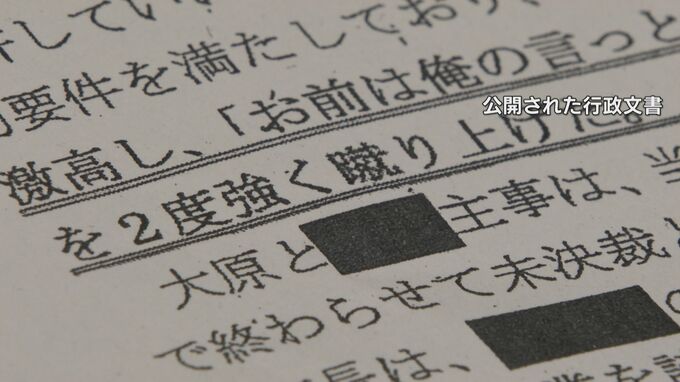 していい
要件を満たしており、
公開された行政文書
激高し、「お前は俺の言っと
を2度強く蹴り上げた。
大原と 主事は、当
で終わらせて未決裁と
長は、 の